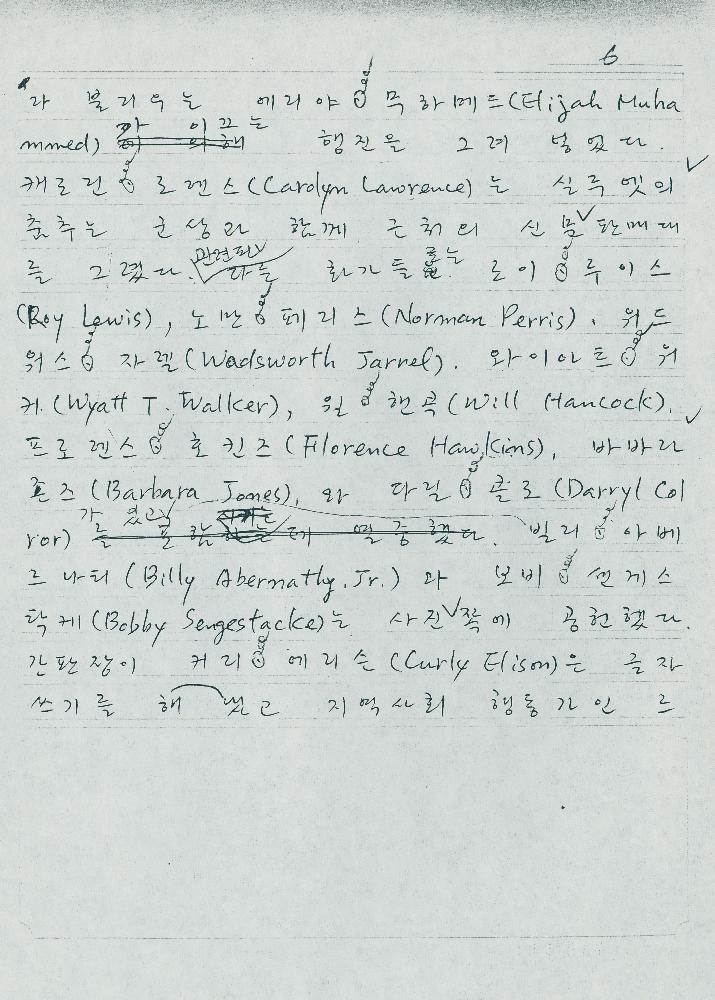 6
라 불리우는 에리야 묵하메드(Elijah Muha
가 이끄는
mmed) 의해 행진을 그려 넣었다.
캐로린 로렌스(Carolyn Lawrence)는 실루엣의
춤추는 군상과 함께 근처의 신문판매대
관련된
를 그렸다. 다른 화가들로는 로이 루이스
(Roy Lewis), 노만 페리스(Norman Perris). 워드
워스 자렐(Wadsworth Jarnel). 와이아트 워
커.(Wyatt T. Walker), 윌 핸콕(Will Hancock).
프로렌스 호킨즈(Florence Hawkins), 바바라
존즈(Barbara Jones), 와 다릴 콜로(Darryl Col
가 있고
ror) 를 열중했다. 빌리 아베
르나티(Billy Abernathy.Jr.)과 보비 센게스
탁케(Bobby Sengestacke)는 사진쪽에 공헌했다.
간판장이 커리 에리슨(Curly Elison)은 글자
쓰기를 해냈고 지역사회 행동가인 르